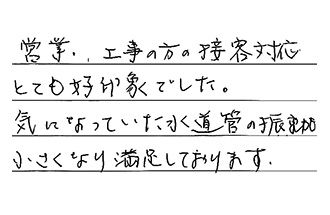 営業、工事の方の接客対応
とても好印象でした。
気になっていた水道管の振動も
小さくなり満足しております.